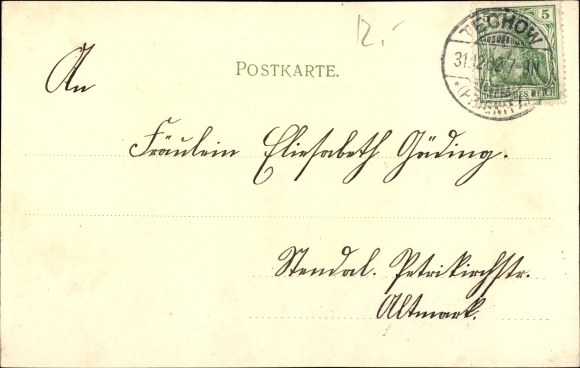 12.-
TECHOW
31.12.02.7-8N
*(PRIGNITZ)*
5
DEUTSCHES REICH
POSTKARTE.
An
Fräulein Eliesabeth Güding.
Stendal. Petrikirchstr.
Altmark.